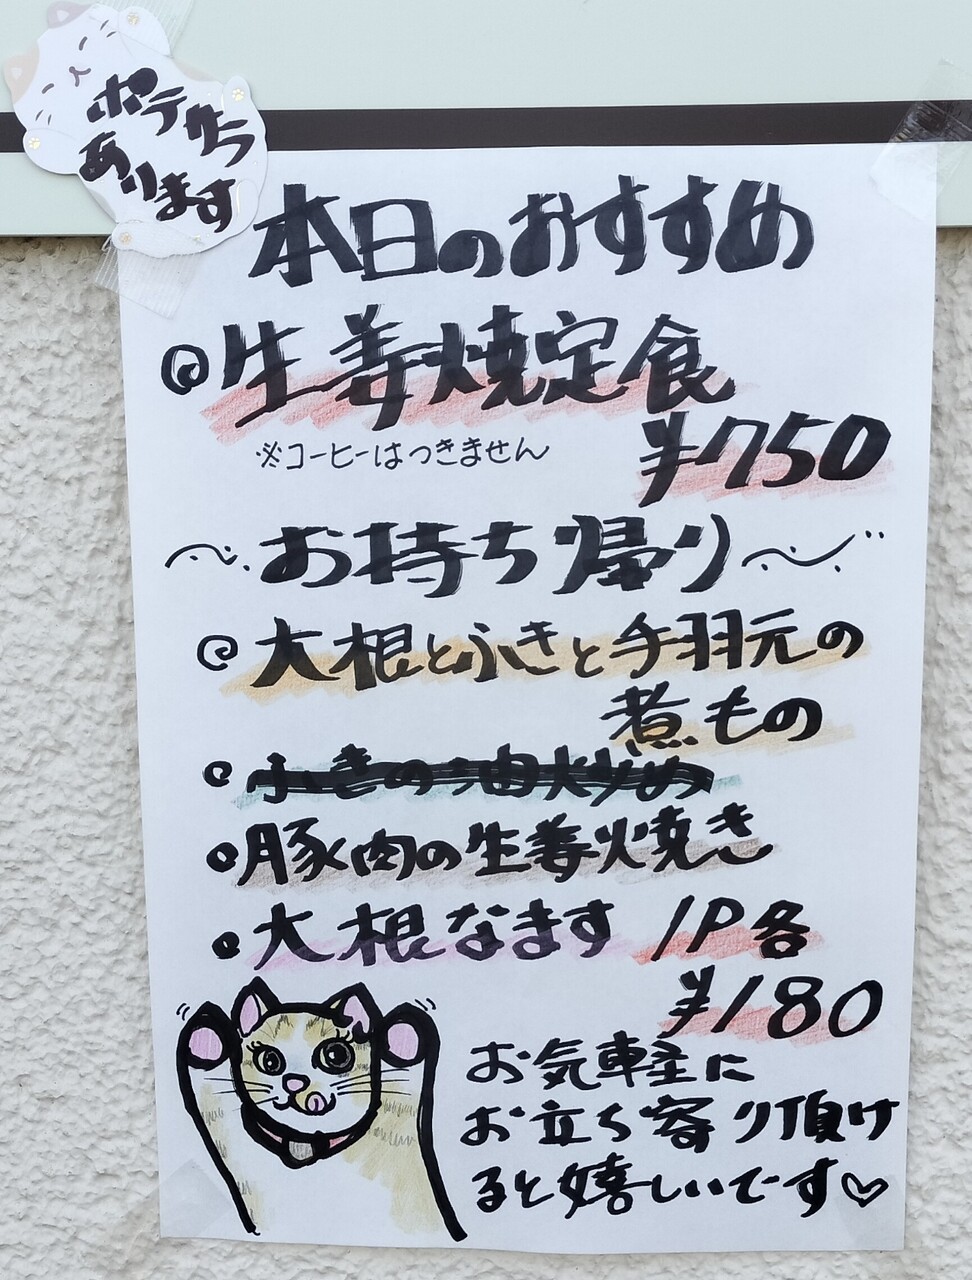 ポテサラ
あります
本日のおすすめ
生姜焼定食
¥750
※コーヒーはつきません
～お持ち帰り～
大根とふきと手羽元の
煮もの
ふきの油炒め
豚肉の生姜焼き
大根なます 1P各
¥180
お気軽に
お立ち寄り頂け
ると嬉しいです♡